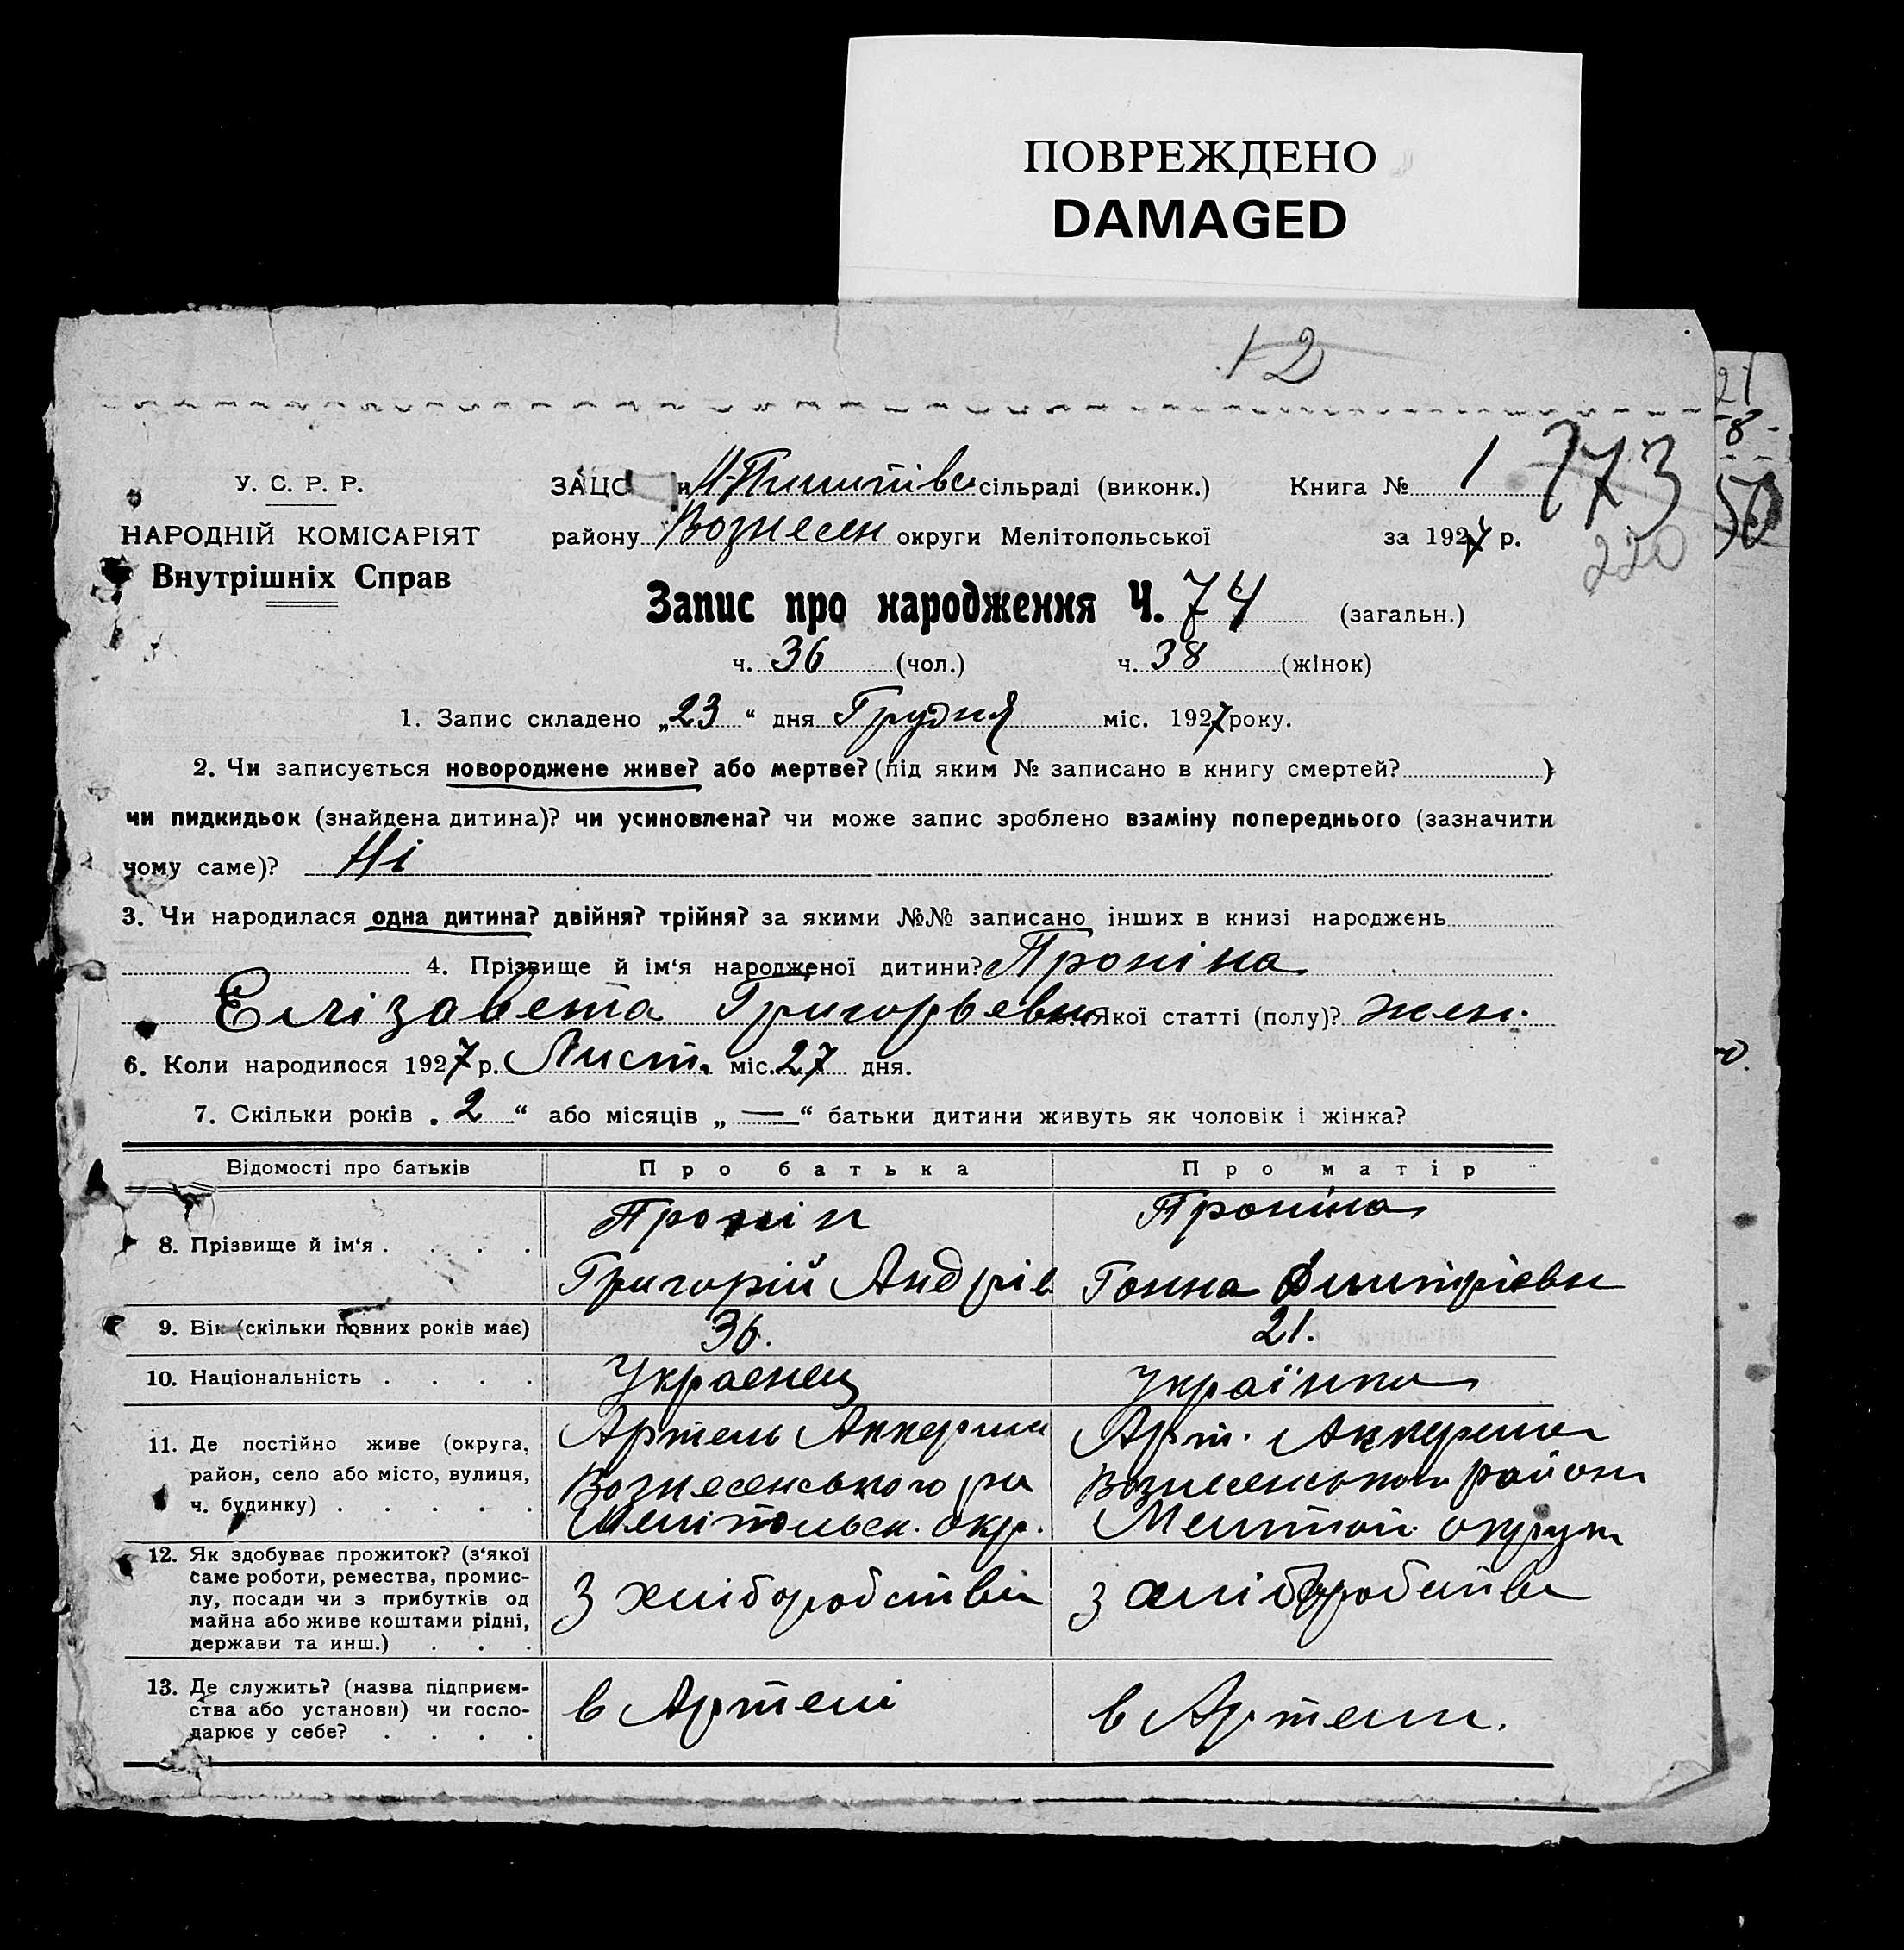 ПОВРЕЖДЕНО
DAMAGED
12
21
8 -
50
У. С. Р. Р.
НАРОДНІЙ КОМІСАРІЯТ
Внутрішніх Справ
ЗАЦС и сільраді (виконк.)
Книга № 1
173
району Вознесен округи Мелітопольської
за 1927 р.
220
Запис про народження Ч. 74 (загальн.)
ч. 36 (чол.) ч. 38 (жінок)
1. Запис складено „23“ дня Грудня міс. 1927 року.
2. Чи записується новороджене живе? або мертве? (під яким № записано в книгу смертей? )
чи пидкидьок (знайдена дитина)? чи усиновлена? чи може запис зроблено взаміну попереднього (зазначити
чому саме)? Ні
3. Чи народилася одна дитина? двійня? трійня? за якими №№ записано інших в книзі народжень
4. Прізвище й ім‘я народженої дитини? Проніна
Елізавета Григорьевна Якої статті (полу)? жен.
6. Коли народилося 1927 р. Лист. міс. 27 дня.
7. Скільки років „2“ або місяців „—“ батьки дитини живуть як чоловік і жінка?
Відомості про батьків Про батька Про матір
8. Прізвище й ім‘я . . . .
Пронін
Григорій Андрів
Проніна
Ганна Дмитрієвн
9. Вік (скільки повних років має) 36. 21.
10. Національність . . . . Украенец Українка
11. Де постійно живе (округа,
район, село або місто, вулиця,
ч. будинку) . . . . .
Артель Аккерман
Вознесенського ра
Мелітольск. окр.
Арт. Аккерман
Вознесенського району
Мелитоп. округи
12. Як здобуває прожиток? (з‘якої
саме роботи, ремества, промис-
лу, посади чи з прибутків од
майна або живе коштами рідні,
держави та инш.) . . .
З хліборобства
З хліборобства
13. Де служить? (назва підприєм-
ства або установи) чи госпо-
дарює у себе? . . . .
в Артелі
в Артели.